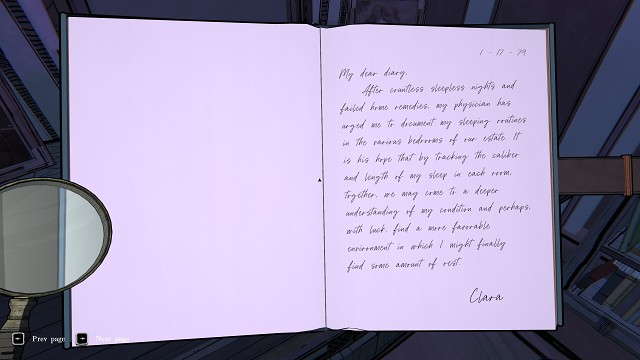 1 - 17 - 79
My dear diary,
After countless sleepless nights and
failed home remedies, my physician has
urged me to document my sleeping routines
in the various bedrooms of our estate. It
is his hope that by tracking the caliber
and length of my sleep in each room,
together, we may come to a deeper
understanding of my condition and perhaps,
with luck, find a more favorable
environment in which I might finally
find some amount of rest.
Clara
Prev page
Next page